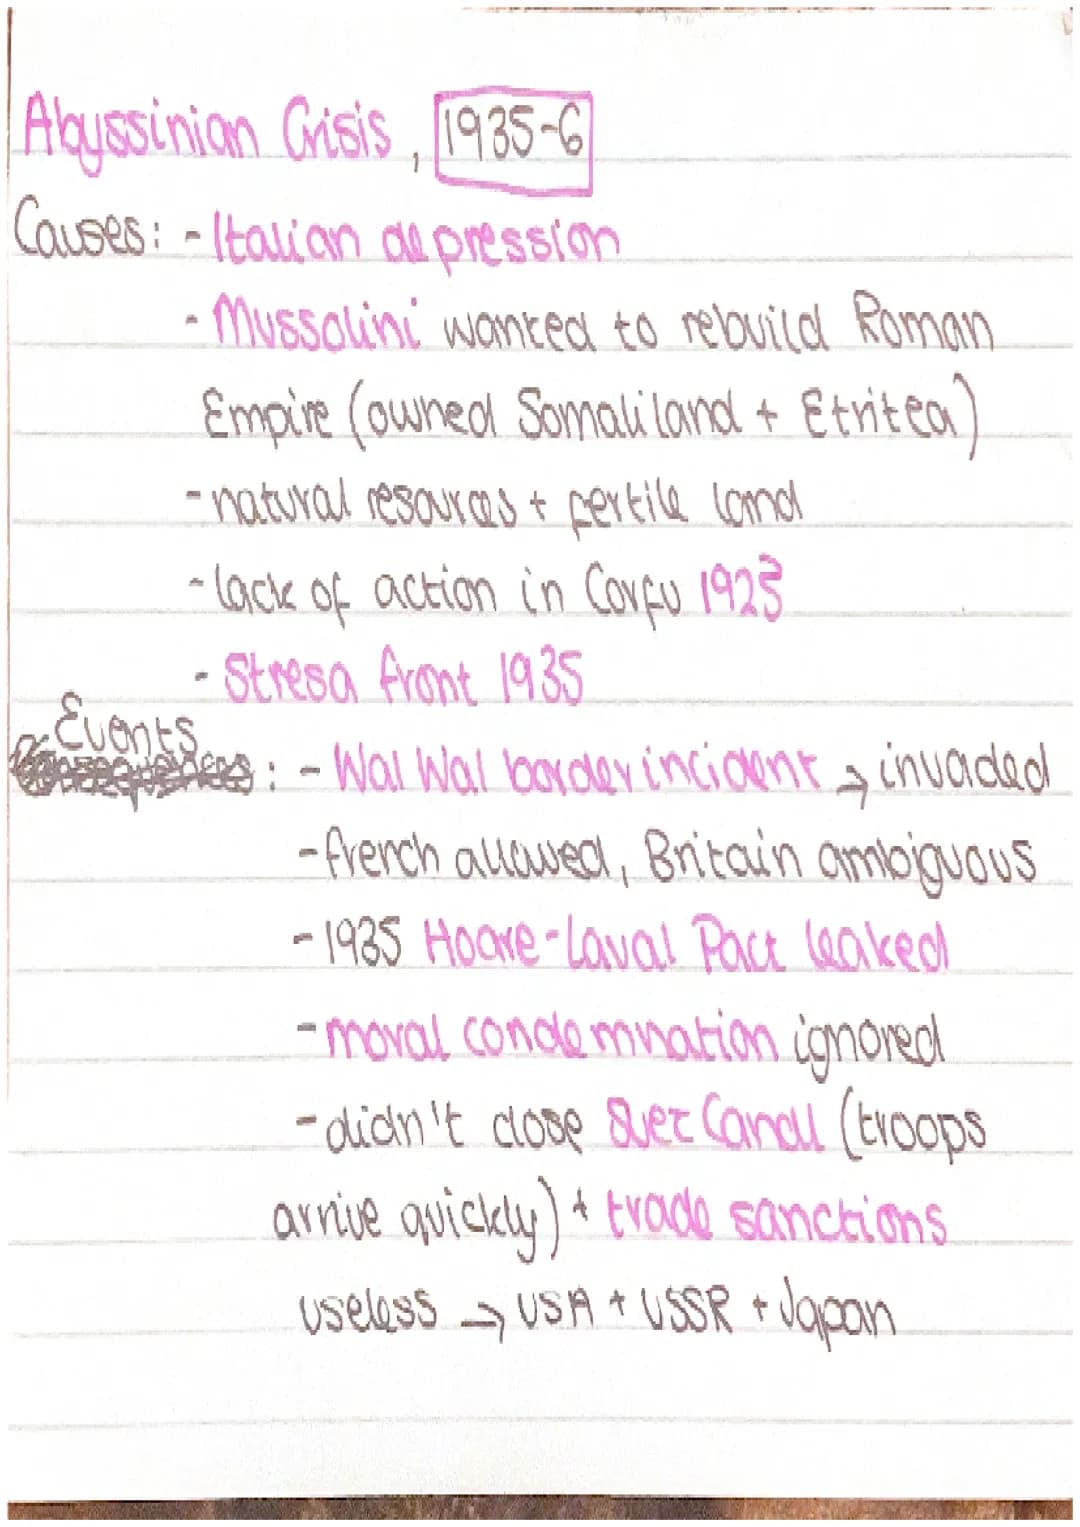 Abyssinian Crisis, 1935-6
Causes: - Italian depression
- Mussolini wanted to rebuild Roman
Empire (owned Somaliland + Etritea)
- natural resources + fertile land
- lack of action in Corfu 1923
- Stresa front 1935
Events
Consequences : - Wal Wal border incident → invaded
- french allowed, Britain ambiguous
- 1935 Hoare-Laval Pact leaked
- moral condemnation ignored
- didn't close Suez Canal (troops
arrive quickly) + trade sanctions
useless → USA + USSR + Japan